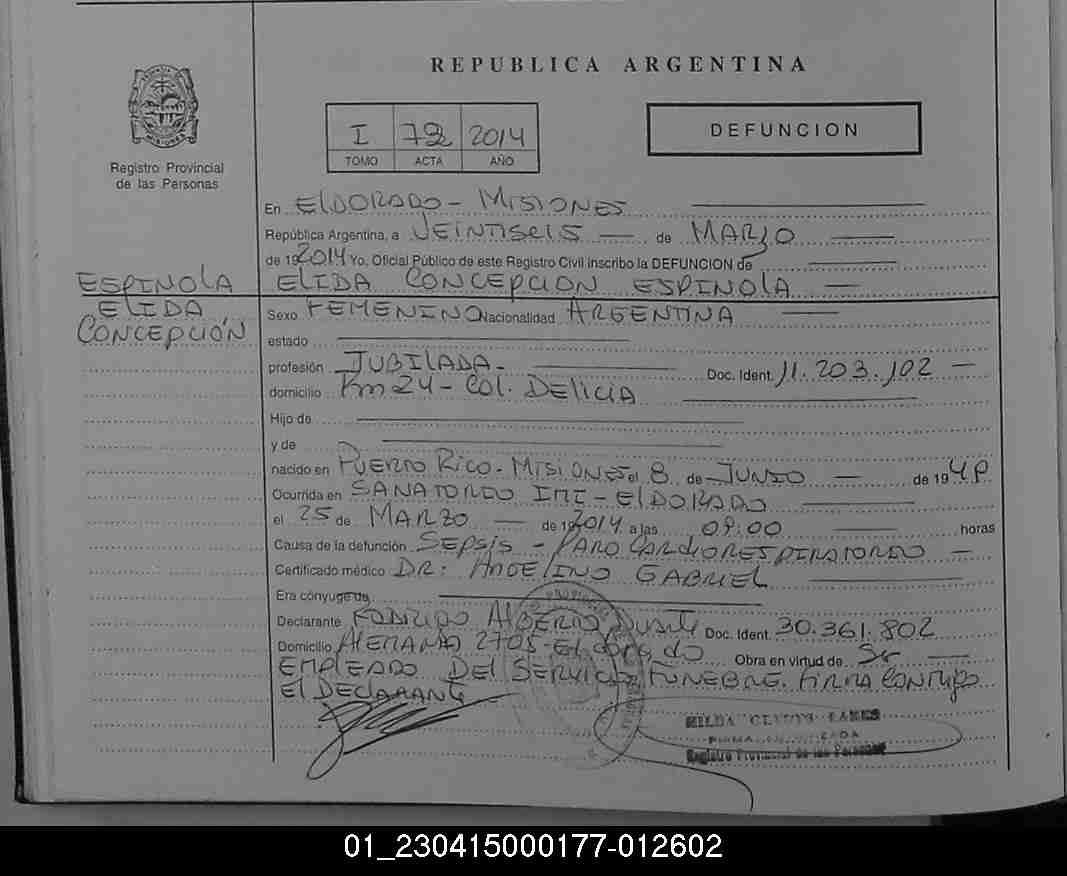 REPUBLICA ARGENTINA
I 792 2014
TOMO ACTA AÑO
DEFUNCION
Registro Provincial
de las Personas
En ELDORADO - MISIONES
República Argentina, a VEINTISEIS de MARZO
de 19 2014 Yo, Oficial Público de este Registro Civil inscribo la DEFUNCION de
ESPINOLA
ELIDA
CONCEPCIÓN
ELIDA CONCEPCION ESPINOLA
Sexo FEMENINO Nacionalidad ARGENTINA
estado
profesión JUBILADA - Doc. Ident. 11.203.102
domicilio Km 24 - Col. DELICIA
Hijo de
y de
nacido en PUERTO RICO - MISIONES el 8 de JUNIO de 19
Ocurrida en SANATORIO - ELDORADO
el 25 de MARZO de 2014 a las 09:00 horas
Causa de la defunción SEPSIS - PARO CARDIORESPIRATORIO
Certificado médico DR: GABRIEL
Era cónyuge de
Declarante RODRIGO ALBERTO Duarte Doc. Ident. 30.361.802
Domicilio ALEMANIA 2705 - Eldorado Obra en virtud de Ser
EMPLEADO DEL SERVICIO FUNEBRE. FIRMA CONMIGO
El DECLARANTE
Registro Provincial de las Personas
01_230415000177-012602